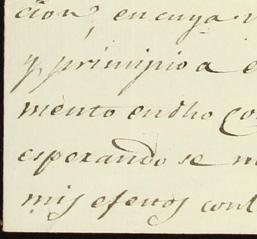 cion, en cuya
y, principio a
mento en dho
esperando se
mis efectos cont